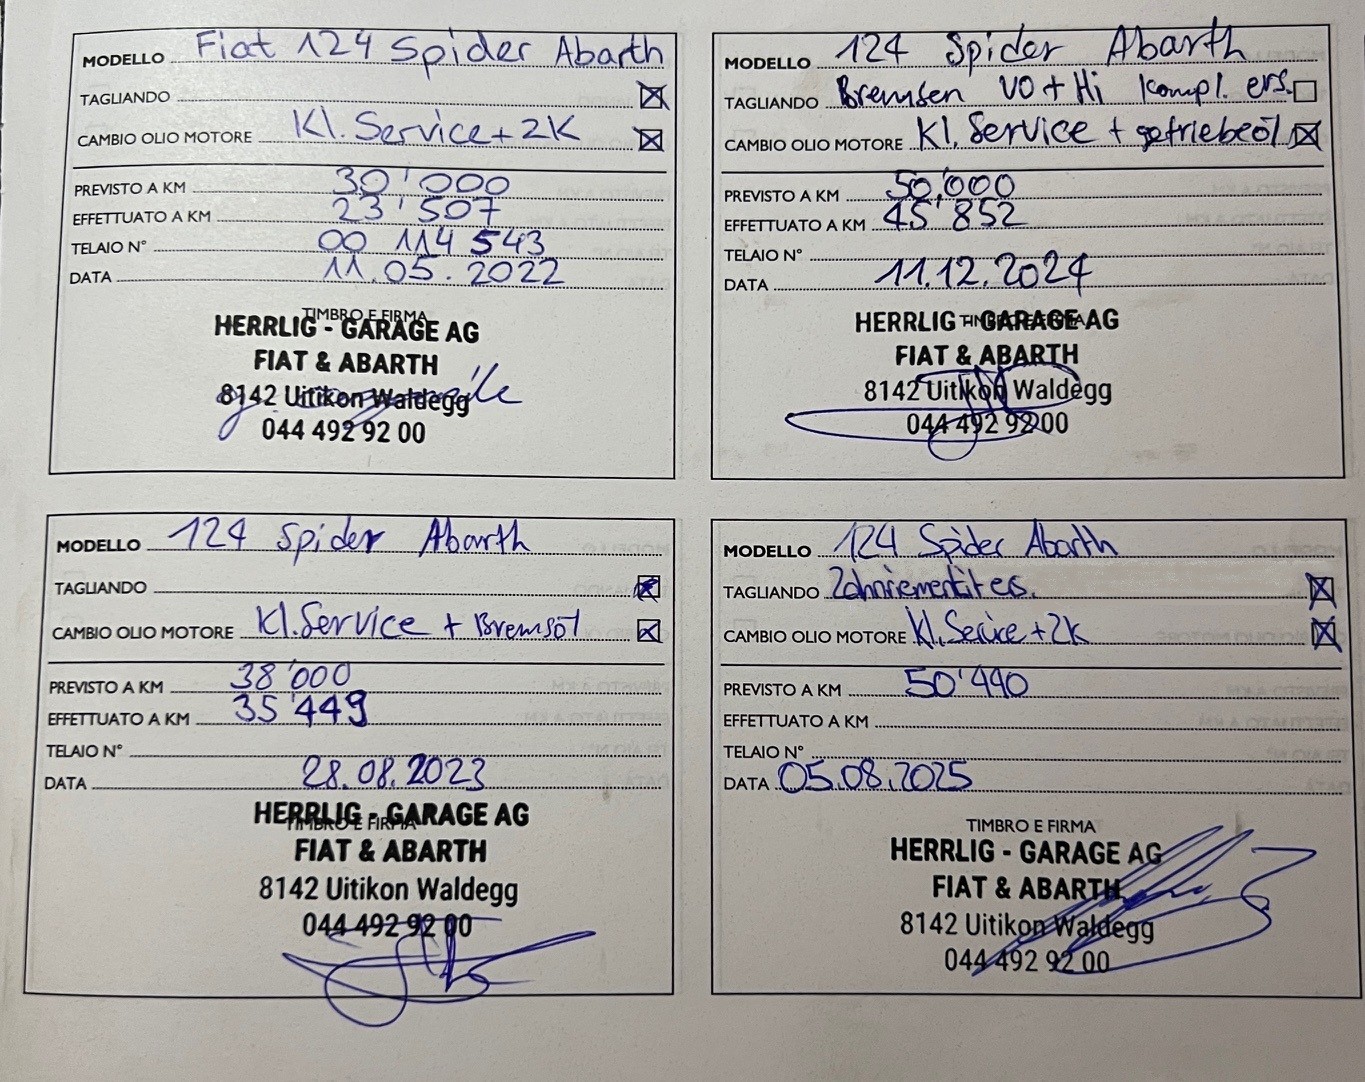 MODELLO Fiat 124 Spider Abarth
TAGLIANDO
CAMBIO OLIO MOTORE Kl. Service + 2K
PREVISTO A KM 30'000
EFFETTUATO A KM 23'507
TELAIO N° 00 114 543
DATA 11.05.2022
TIMBRO E FIRMA
HERRLIG - GARAGE AG
FIAT & ABARTH
8142 Uitikon Waldegg
044 492 92 00
MODELLO 124 Spider Abarth
TAGLIANDO Bremsen VO + Hi kompl. ers.
CAMBIO OLIO MOTORE Kl. Service + getriebeöl
PREVISTO A KM 50'000
EFFETTUATO A KM 45'852
TELAIO N°
DATA 11.12.2024
TIMBRO E FIRMA
HERRLIG - GARAGE AG
FIAT & ABARTH
8142 Uitikon Waldegg
044 492 92 00
MODELLO 124 Spider Abarth
TAGLIANDO
CAMBIO OLIO MOTORE Kl. Service + Bremsöl
PREVISTO A KM 38'000
EFFETTUATO A KM 35'449
TELAIO N°
DATA 28.08.2023
TIMBRO E FIRMA
HERRLIG - GARAGE AG
FIAT & ABARTH
8142 Uitikon Waldegg
044 492 92 00
MODELLO 124 Spider Abarth
TAGLIANDO Zahnriemenkit ers.
CAMBIO OLIO MOTORE Kl. Service + 2K
PREVISTO A KM 50'490
EFFETTUATO A KM
TELAIO N°
DATA 05.08.2025
TIMBRO E FIRMA
HERRLIG - GARAGE AG
FIAT & ABARTH
8142 Uitikon Waldegg
044 492 92 00